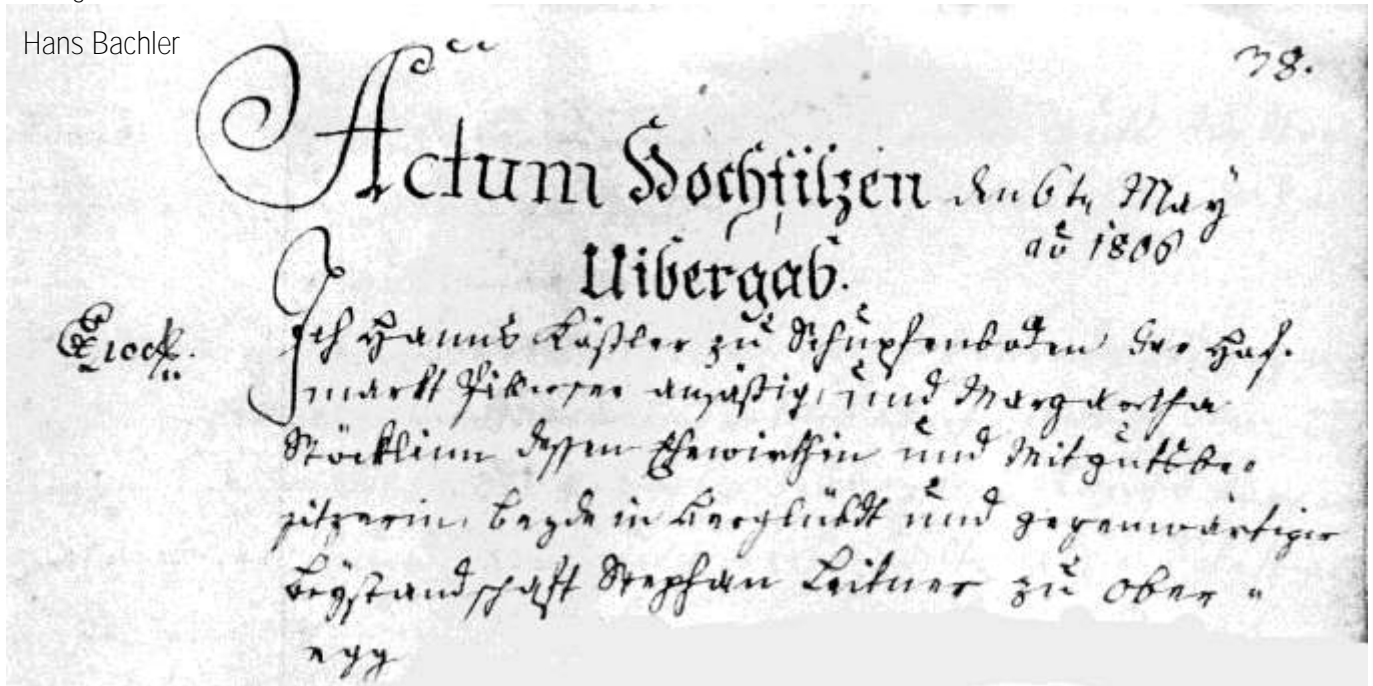 Hans Bachler
38.
Actum Hochfilzen den 6tn May
aō 1806
Uibergab.
Ich Hanns Käßler zu Schupfenboden der Hof-
markt ansäßig, und Margaretha
Stöcklinn dessen Ehewirthin und Mitgutsbe-
sitzerin, beyde in verglübdt und gegenwärtiger
beystandschaft Stephan Leitner zu Ober-
egg